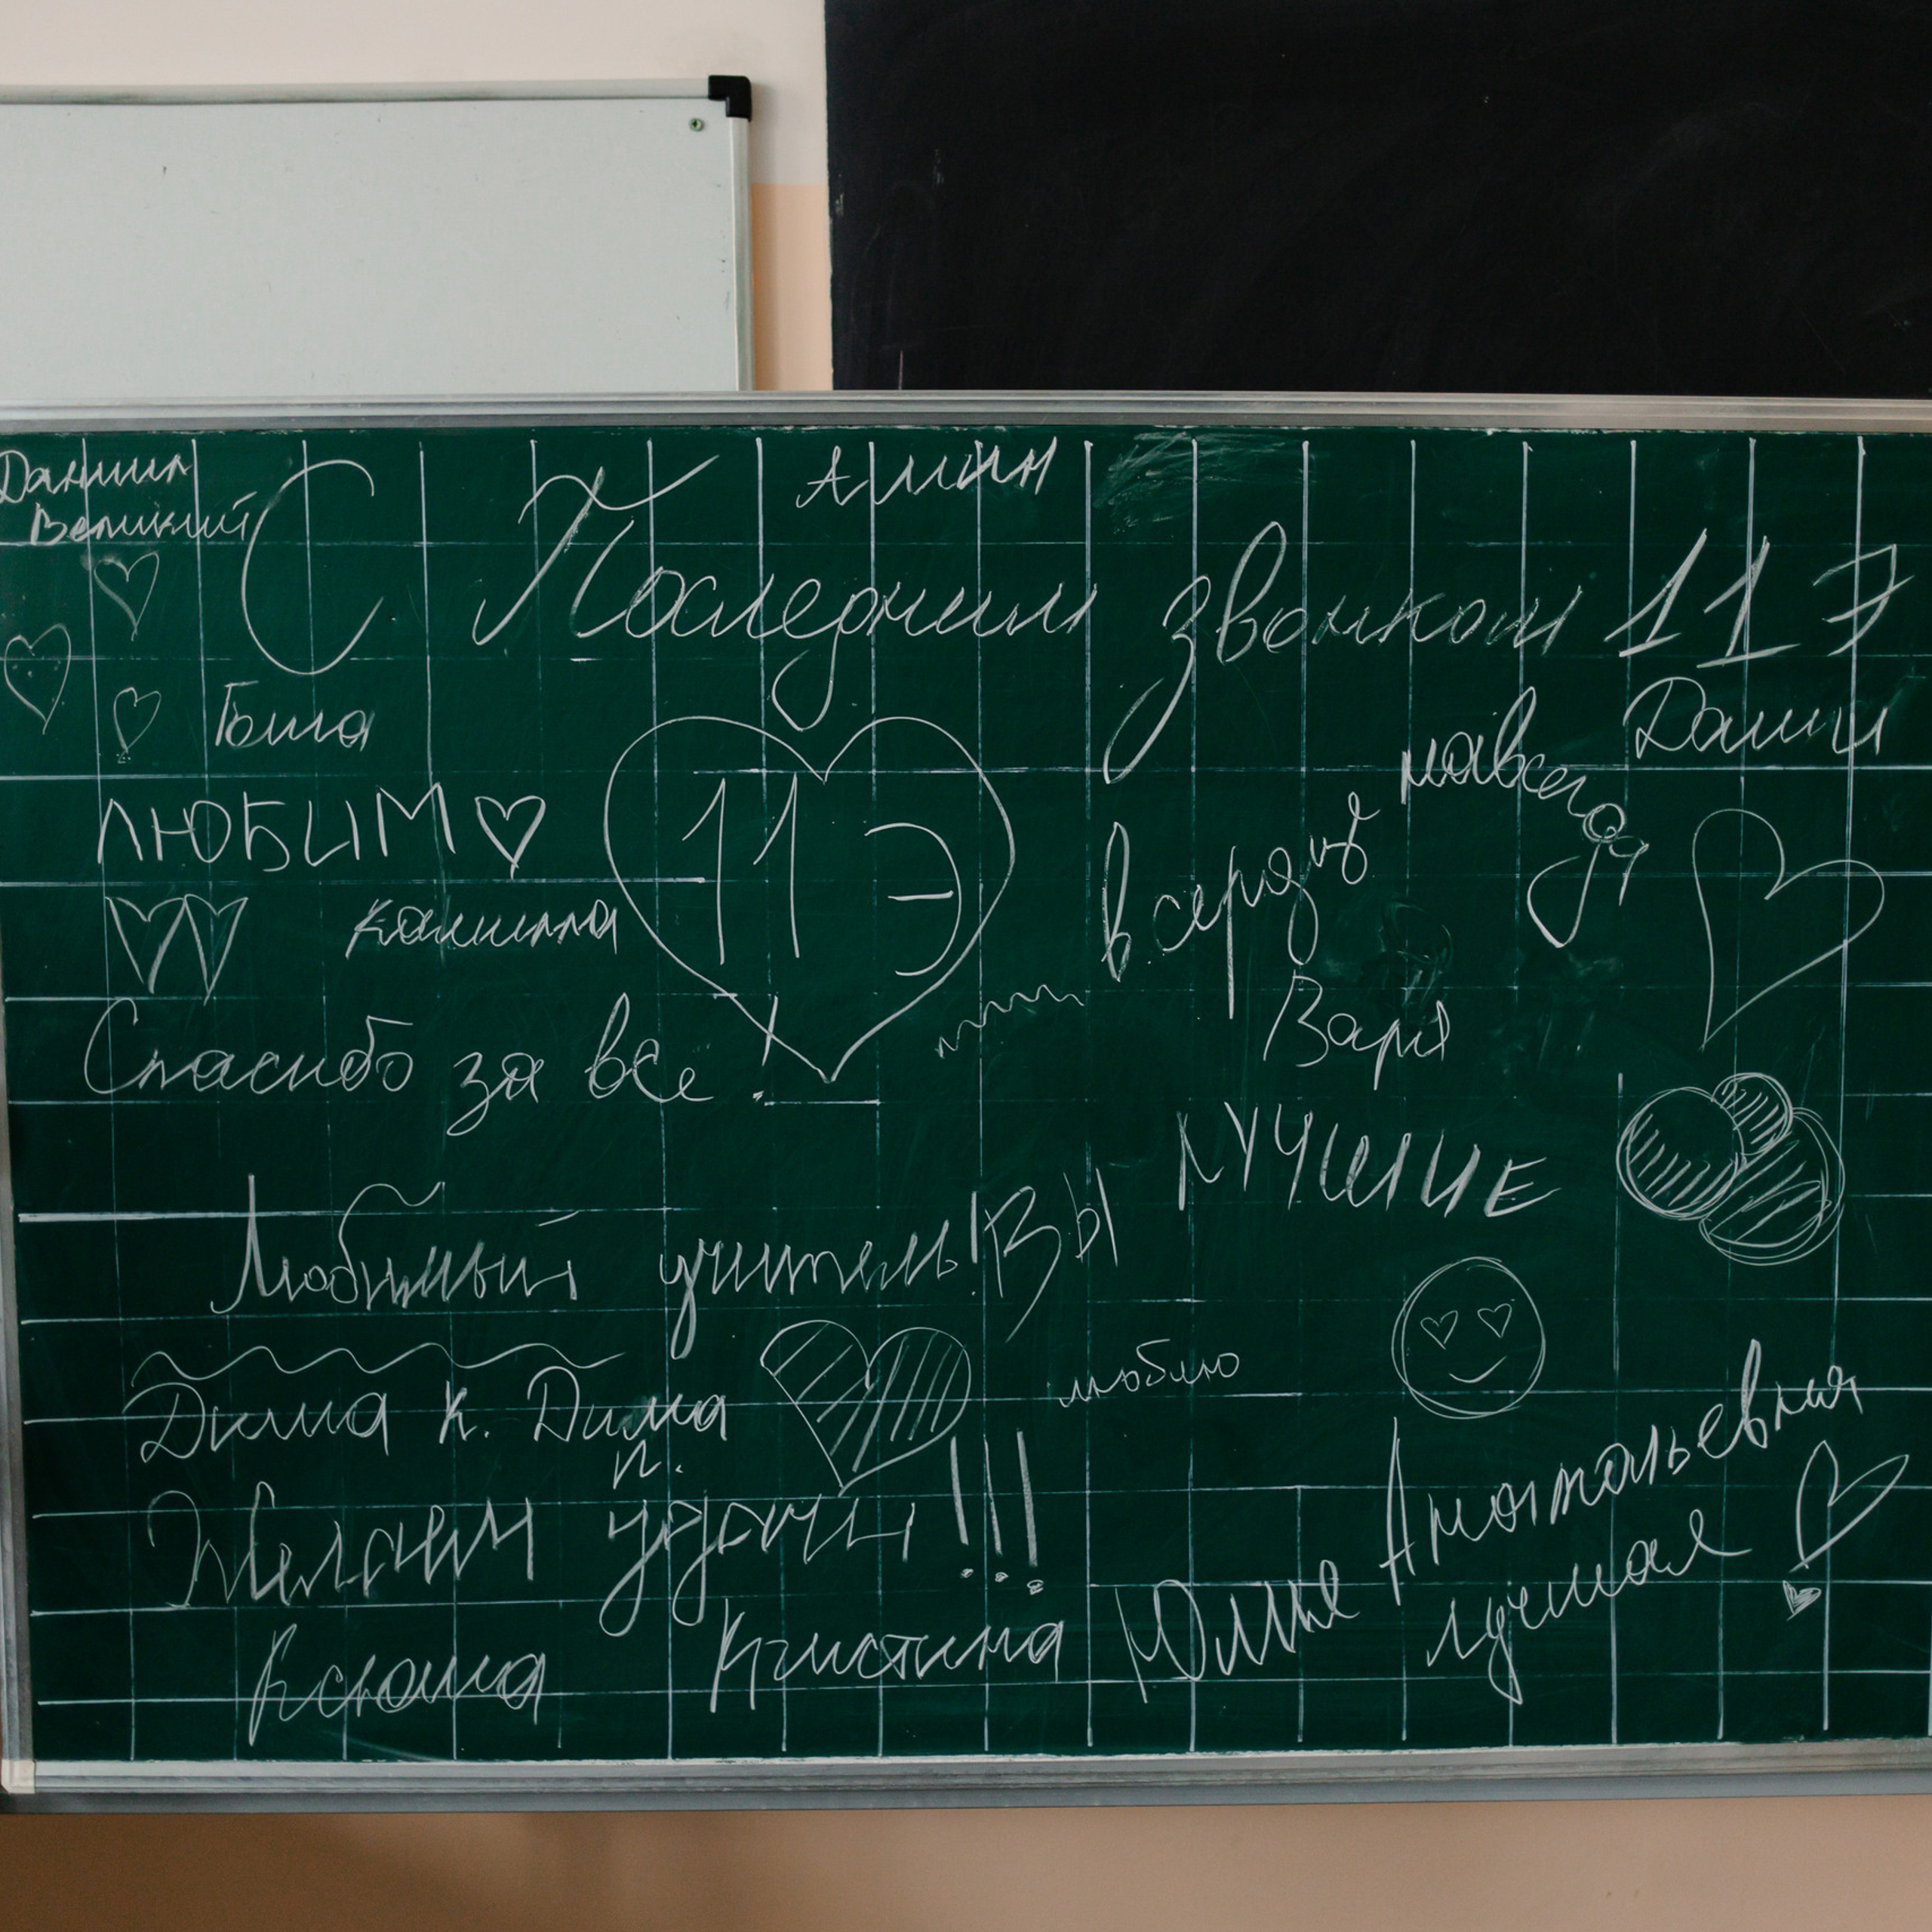 Даниил
Великий
Амин
С Последним звонком 11 Э
Гоша
Даши
навсегда
ЛЮБИМ
11 Э
в сердце
Камилла
Варя
Спасибо за все!
ЛУЧШИЕ
Любимый учитель! ВЫ
люблю
Дима К. Дима
П.
Желаем удачи!!!
Юлия Анатольевна
лучшая
Ксюша Кристина